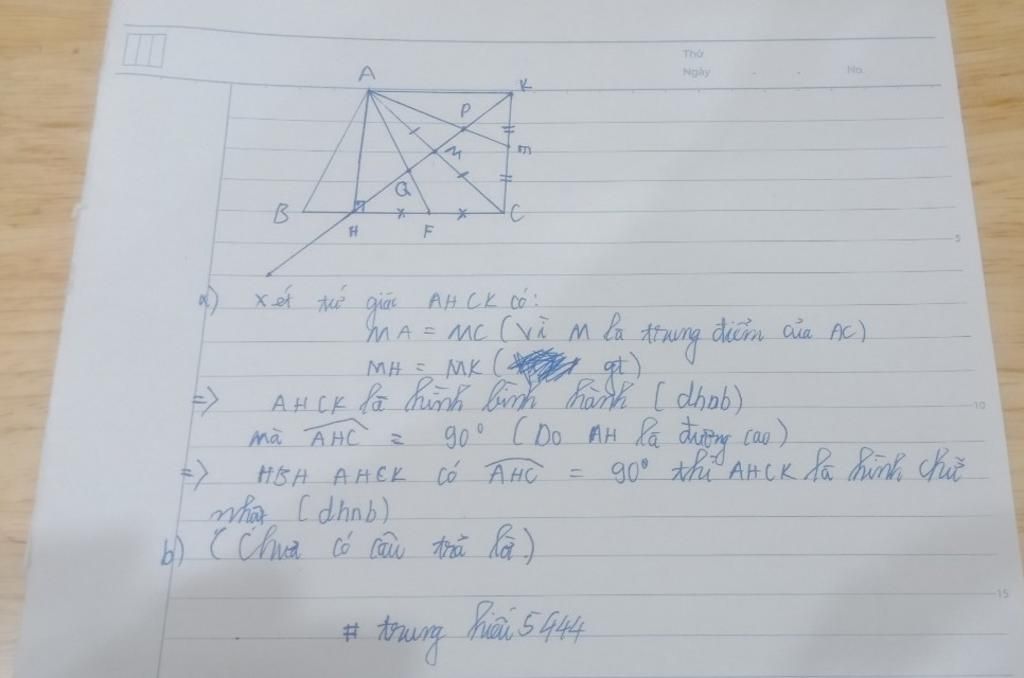 Thứ
Ngày . . No.
A
K
P
M
E
Q
B
H
F
C
5
a) Xét tứ giác AHCK có:
MA = MC (Vì M là trung điểm của AC)
MH = MK ( gt)
=> AHCK là hình bình hành (dhnb)
10
mà AHC = 90° (Do AH là đường cao)
=> HBH AHCK có AHC = 90° thì AHCK là hình chữ
nhật (dhnb)
b) (Chưa có câu trả lời)
15
# trung hiếu 5444